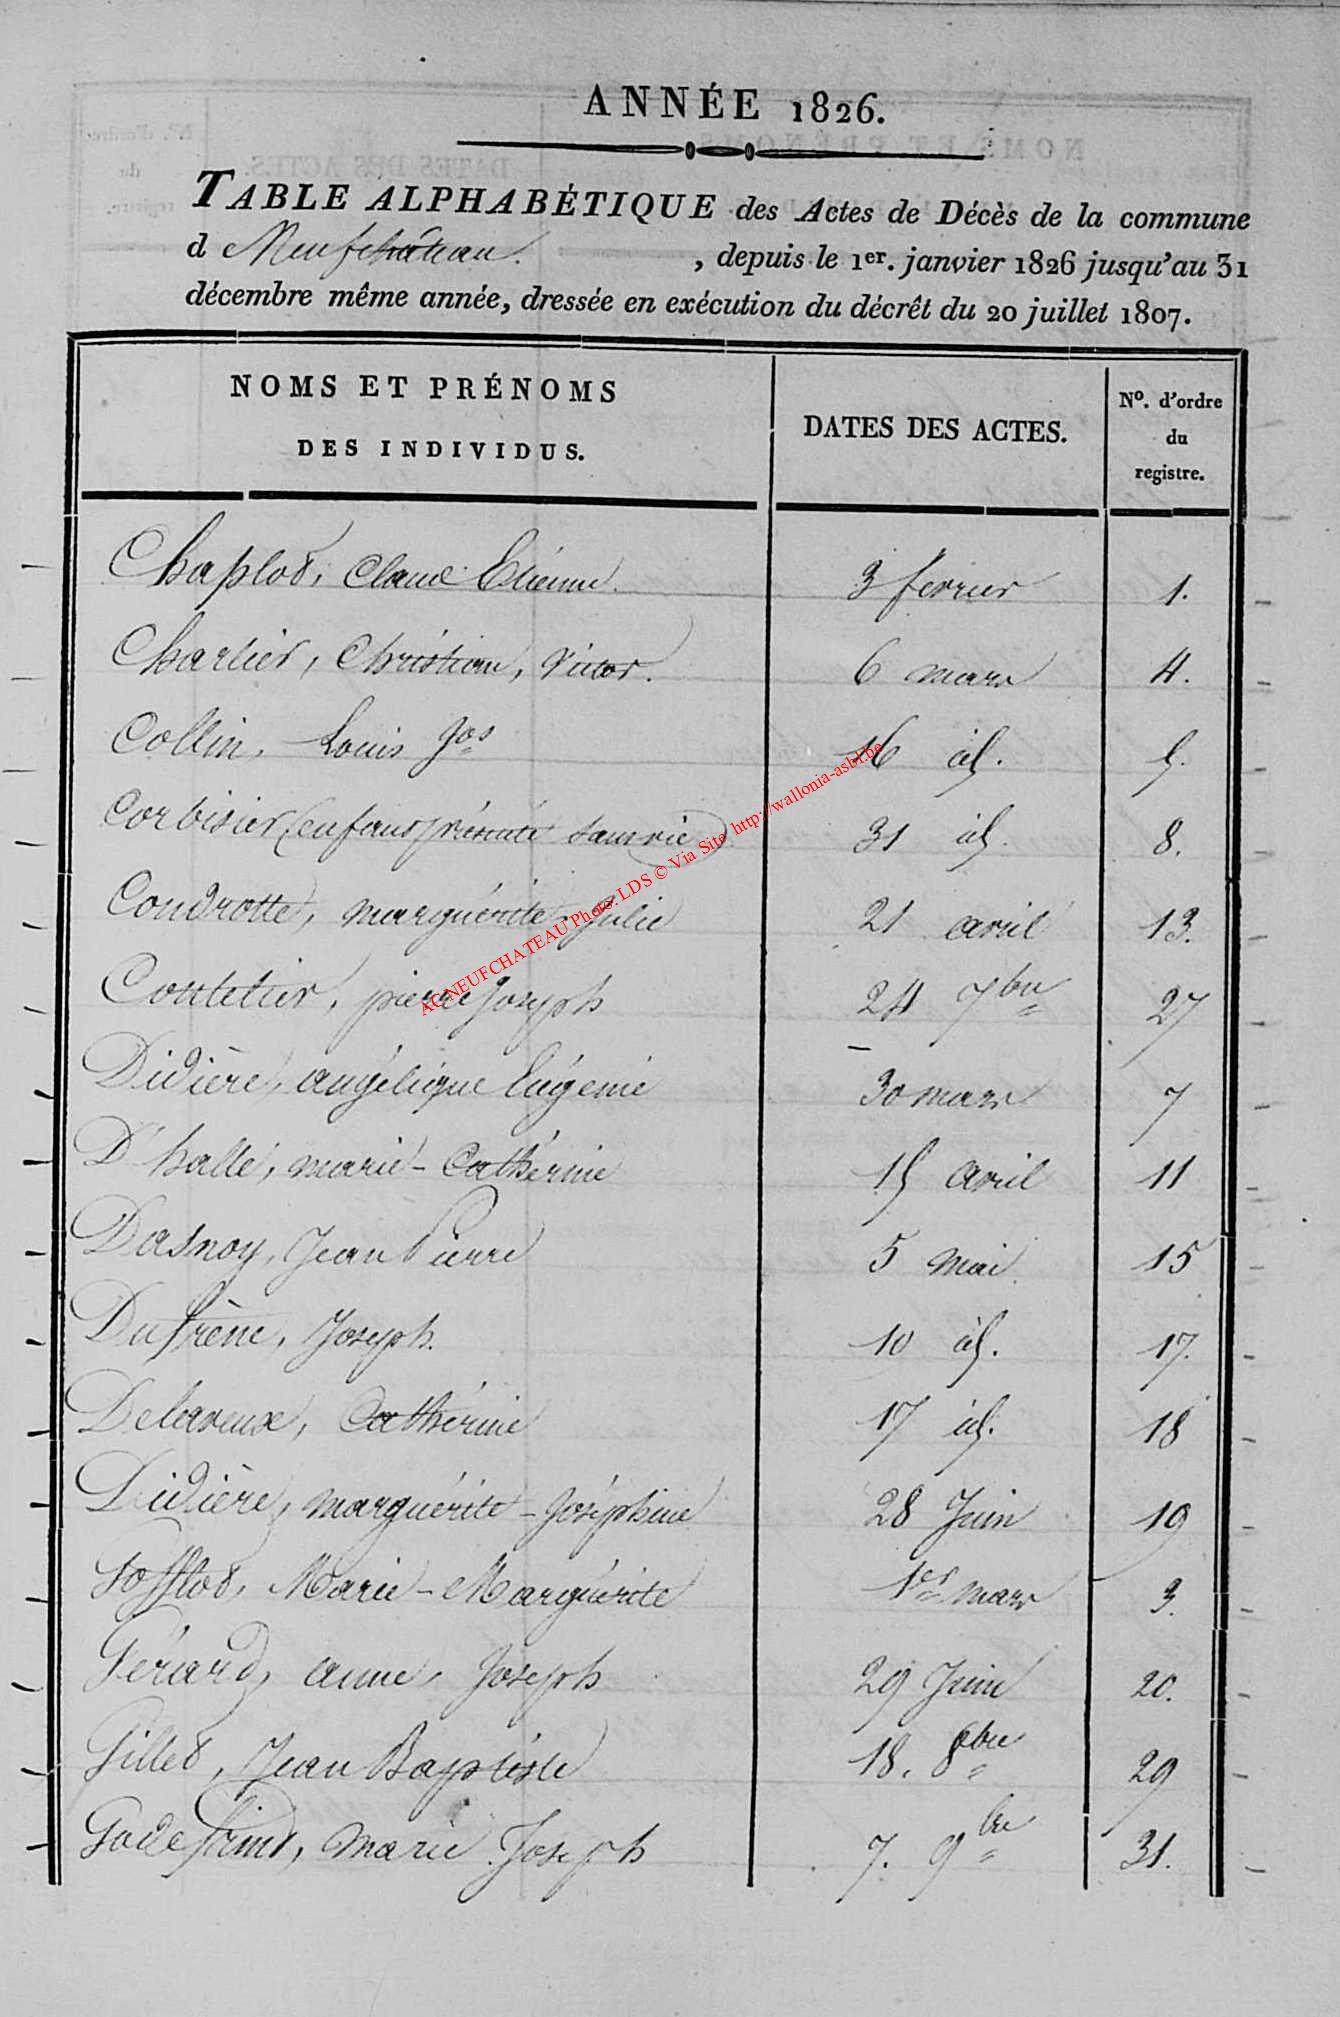 ANNÉE 1826.
TABLE ALPHABÉTIQUE des Actes de Décès de la commune
d Neufchâteau. , depuis le 1er. janvier 1826 jusqu'au 31
décembre même année, dressée en exécution du décrêt du 20 juillet 1807.
NOMS ET PRÉNOMS DES INDIVIDUS. DATES DES ACTES. No. d'ordre du registre.
Chaplot, Claude Etienne. 3 fevrier 1.
Charlier, Christian, Victor. 6 mars 4.
Collin, Louis Jos 16 id. 5.
Corbisier (enfant présenté sans vie) 31 id. 8.
Coudrotte, marguérite Julie 21 avril 13.
Coutelier, pierre Joseph 24 7bre 27
Didière, angélique Eugénie 30 mars 7
D'hallé, marie-Cathérine 15 avril 11
Dasnoy, Jean Pierre 5 mai 15
Dufrène, Joseph. 10 id. 17.
Delaveux, Cathérine 17 id. 18
Didière, marguérite-Joséphine 28 Juin 19
Marie-Marguérite 1er mars 3.
Gérard, anne, Joseph 29 Juin 20.
Gillet, Jean Baptiste 18. 8bre 29
marie Joseph 7. 9bre 31.
AC NEUFCHATEAU Photo: LDS © Via Site http://wallonia-asbl.be